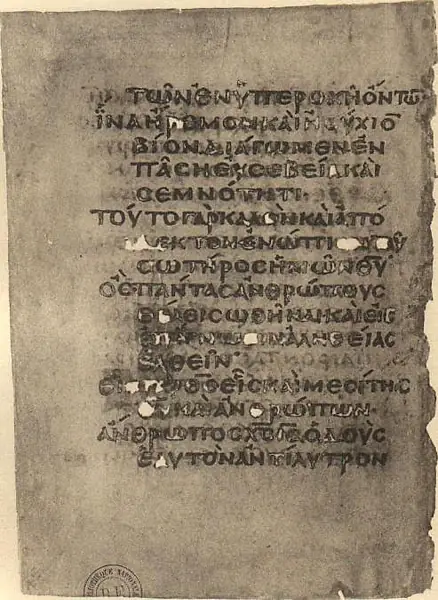 ΤΩΝ ΕΝ ΥΠΕΡΟΧΗ ΟΝΤΩ
ΙΝΑ ΗΡΕΜΟΝ ΚΑΙ ΗϹΥΧΙΟ
ΒΙΟΝ ΔΙΑΓΩΜΕΝ ΕΝ
ΠΑϹΗ ΕΥϹΕΒΕΙΑ ΚΑΙ
ϹΕΜΝΟΤΗΤΙ·
ΤΟΥΤΟ ΓΑΡ ΚΑΛΟΝ ΚΑΙ ΑΠΟ
ΔΕΚΤΟΝ ΕΝΩΠΙΟΝ ΤΟΥ
ϹΩΤΗΡΟϹ ΗΜΩΝ ΘΥ
ΟϹ ΠΑΝΤΑϹ ΑΝΘΡΩΠΟΥϹ
ΘΕΛΕΙ ϹΩΘΗΝΑΙ ΚΑΙ ΕΙϹ
ΕΠΙΓΝΩϹΙΝ ΑΛΗΘΕΙΑϹ
ΕΛΘΕΙΝ
ΕΙϹ ΓΑΡ ΘϹ ΕΙϹ ΚΑΙ ΜΕϹΙΤΗϹ
ΘΥ ΚΑΙ ΑΝΘΡΩΠΩΝ
ΑΝΘΡΩΠΟϹ ΧϹ ΙϹ Ο ΔΟΥϹ
ΕΑΥΤΟΝ ΑΝΤΙΛΥΤΡΟΝ